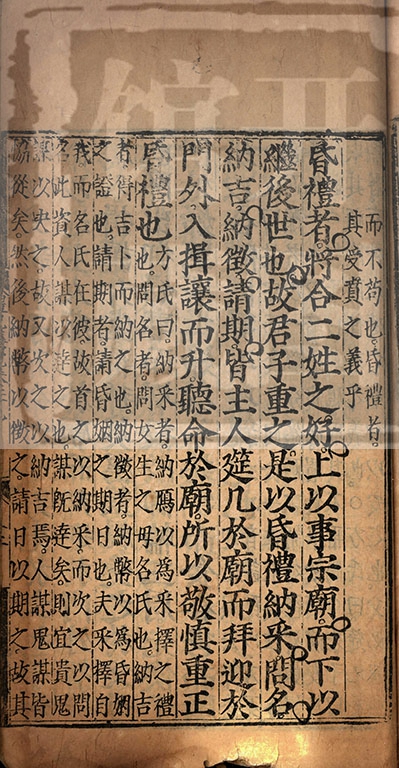 而不苟也。昏禮者。
其受賁之義乎
昏禮者。將合二姓之好。上以事宗廟。而下以
繼後世也。故君子重之。是以昏禮納采。問名。
納吉。納徵。請期。皆主人筵几於廟。而拜迎於
門外。入揖讓而升。聽命於廟。所以敬慎重正
昏禮也。
方氏曰。納采者。納鴈以爲采擇之禮
也。問名者。問女生之母名氏也。納吉
者。得吉卜而納之也。納徵者。納幣以爲昏姻
之證也。請期者。請昏姻之期日也。夫采擇自
我而名氏在彼。故首之以納采。而次之以問
名。此資人謀以達之也。謀旣達矣。則宜貴鬼
謀以決之。故又次之以納吉焉。人謀鬼謀皆
恊從矣。然後納幣以徵之。請日以期之。故其